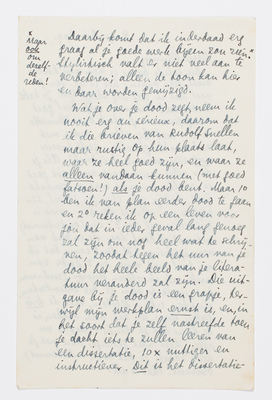 x
Maar
ook
om
dezelf-
de reden!
Daarbij komt dat ik inderdaad erg
graag al je goede werk bijeen zou zien.x
Stylistisch valt er niet veel aan te
verbeteren; alleen de toon kan hier
en daar worden gewijzigd.
Wat je over je dood zegt, neem ik
nooit erg au sérieux, daarom dat
ik die brieven van Rudolf Snellen
maar rustig op hun plaats laat,
waar ze heel goed zijn, en waar ze
alleen vandaan kunnen (met goed
fatsoen!) als je dood bent. Maar 1o
ben ik van plan eerder dood te gaan
en 2o reken ik op een leven voor
jou dat in ieder geval lang genoeg
zal zijn om nog heel wat te schrij-
ven, zoodat tegen het uur van je
dood het heele beeld van je litera-
tuur veranderd zal zijn. Die uit-
gave bij je dood is een grapje, ter-
wijl mijn werkplan ernst is, en, in
het soort dat je zelf nastreefde toen
je dacht iets te zullen leeren van
een dissertatie, 10x nuttiger en
instructiever. Dit is het dissertatie-